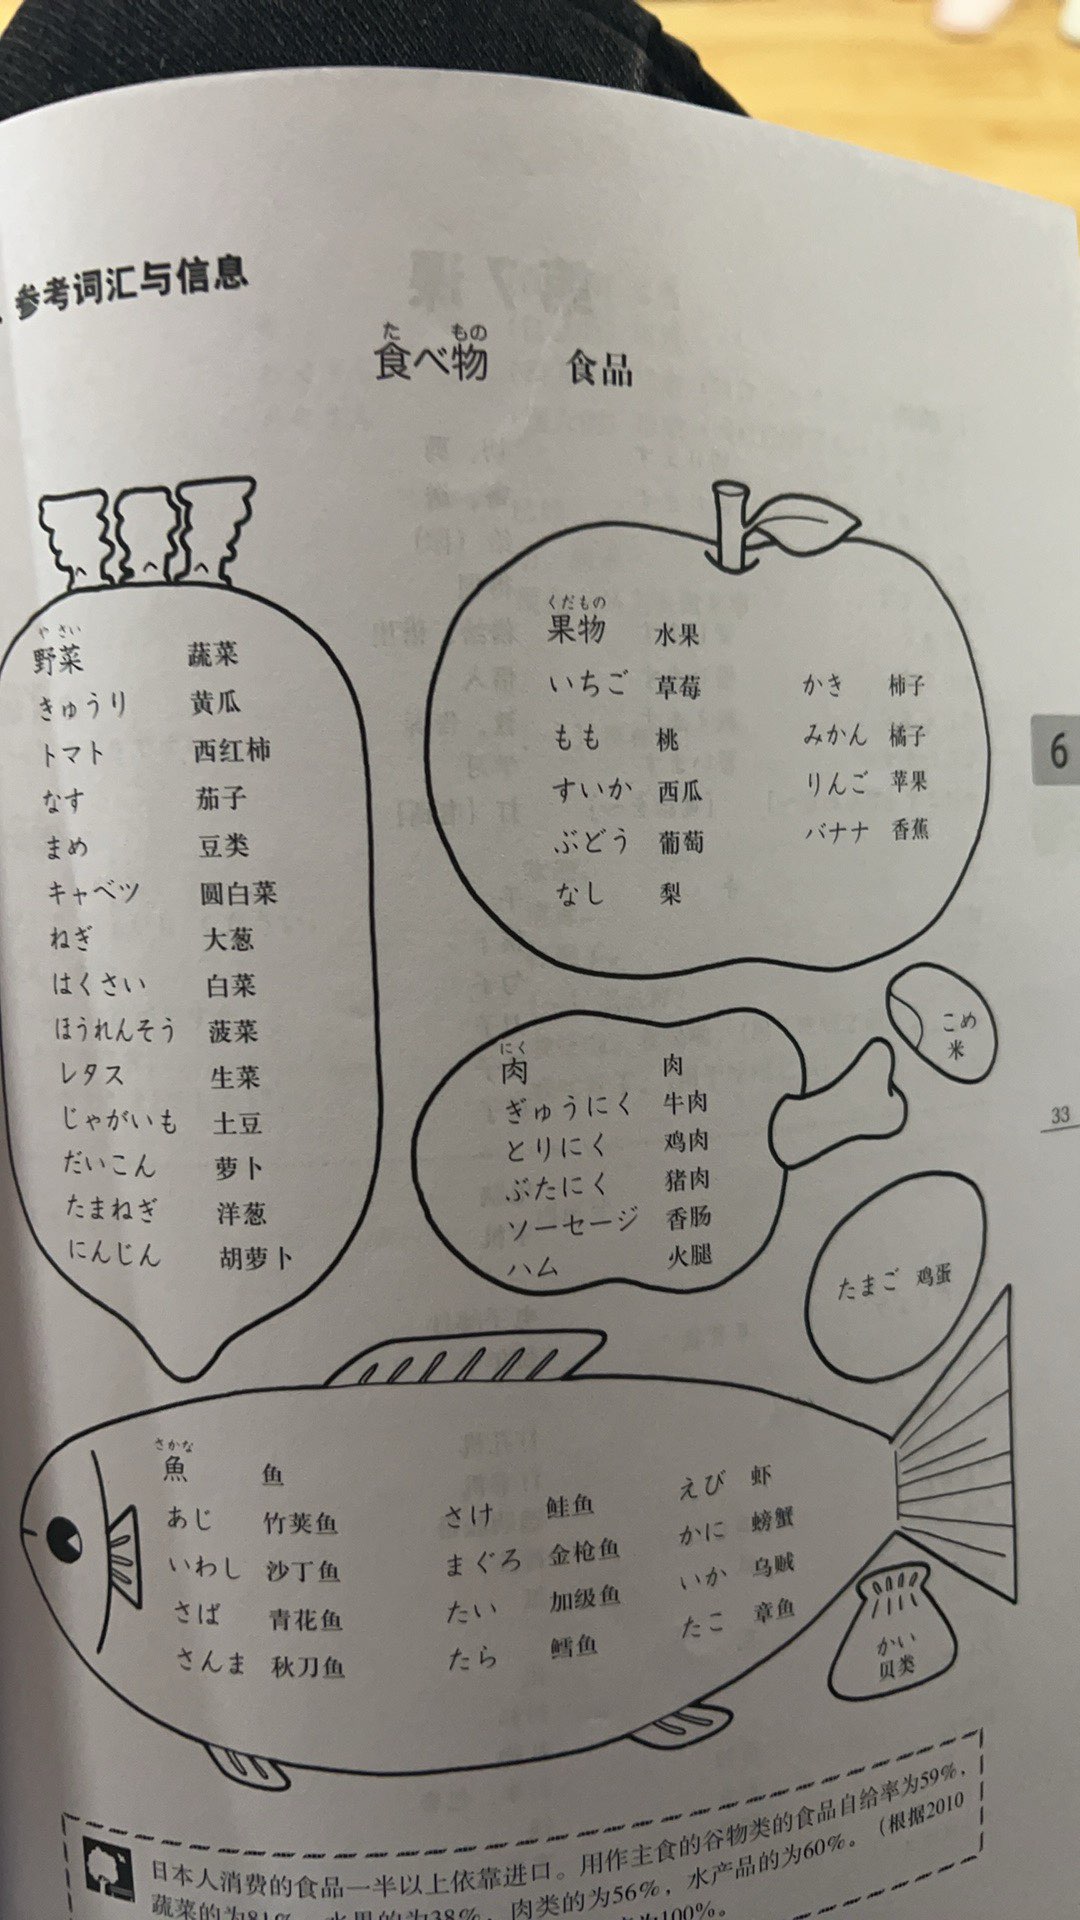 参考词汇与信息
た もの
食べ物 食品
や さい
野菜 蔬菜
きゅうり 黄瓜
トマト 西红柿
なす 茄子
まめ 豆类
キャベツ 圆白菜
ねぎ 大葱
はくさい 白菜
ほうれんそう 菠菜
レタス 生菜
じゃがいも 土豆
だいこん 萝卜
たまねぎ 洋葱
にんじん 胡萝卜
くだもの
果物 水果
いちご 草莓
もも 桃
すいか 西瓜
ぶどう 葡萄
なし 梨
かき 柿子
みかん 橘子
りんご 苹果
バナナ 香蕉
6
こめ
米
33
にく
肉 肉
ぎゅうにく 牛肉
とりにく 鸡肉
ぶたにく 猪肉
ソーセージ 香肠
ハム 火腿
たまご 鸡蛋
さかな
魚 鱼
あじ 竹荚鱼
いわし 沙丁鱼
さば 青花鱼
さんま 秋刀鱼
さけ 鲑鱼
まぐろ 金枪鱼
たい 加级鱼
たら 鳕鱼
えび 虾
かに 螃蟹
いか 乌贼
たこ 章鱼
かい
贝类
日本人消费的食品一半以上依靠进口。用作主食的谷物类的食品自给率为59%，
蔬菜的为81%，水果的为38%，肉类的为56%，水产品的为60%。（根据2010
为100%。